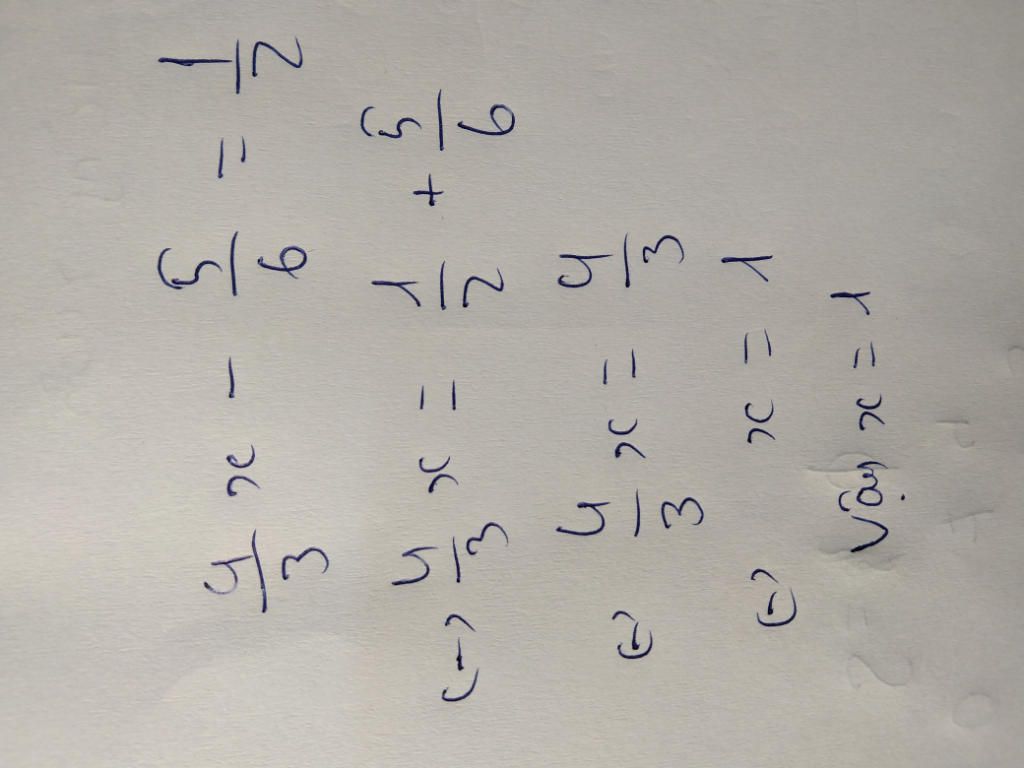 4/3 x - 5/6 = 1/2
(-) 4/3 x = 1/2 + 5/6
(-) 4/3 x = 4/3
(-) x = 1
Vậy x = 1